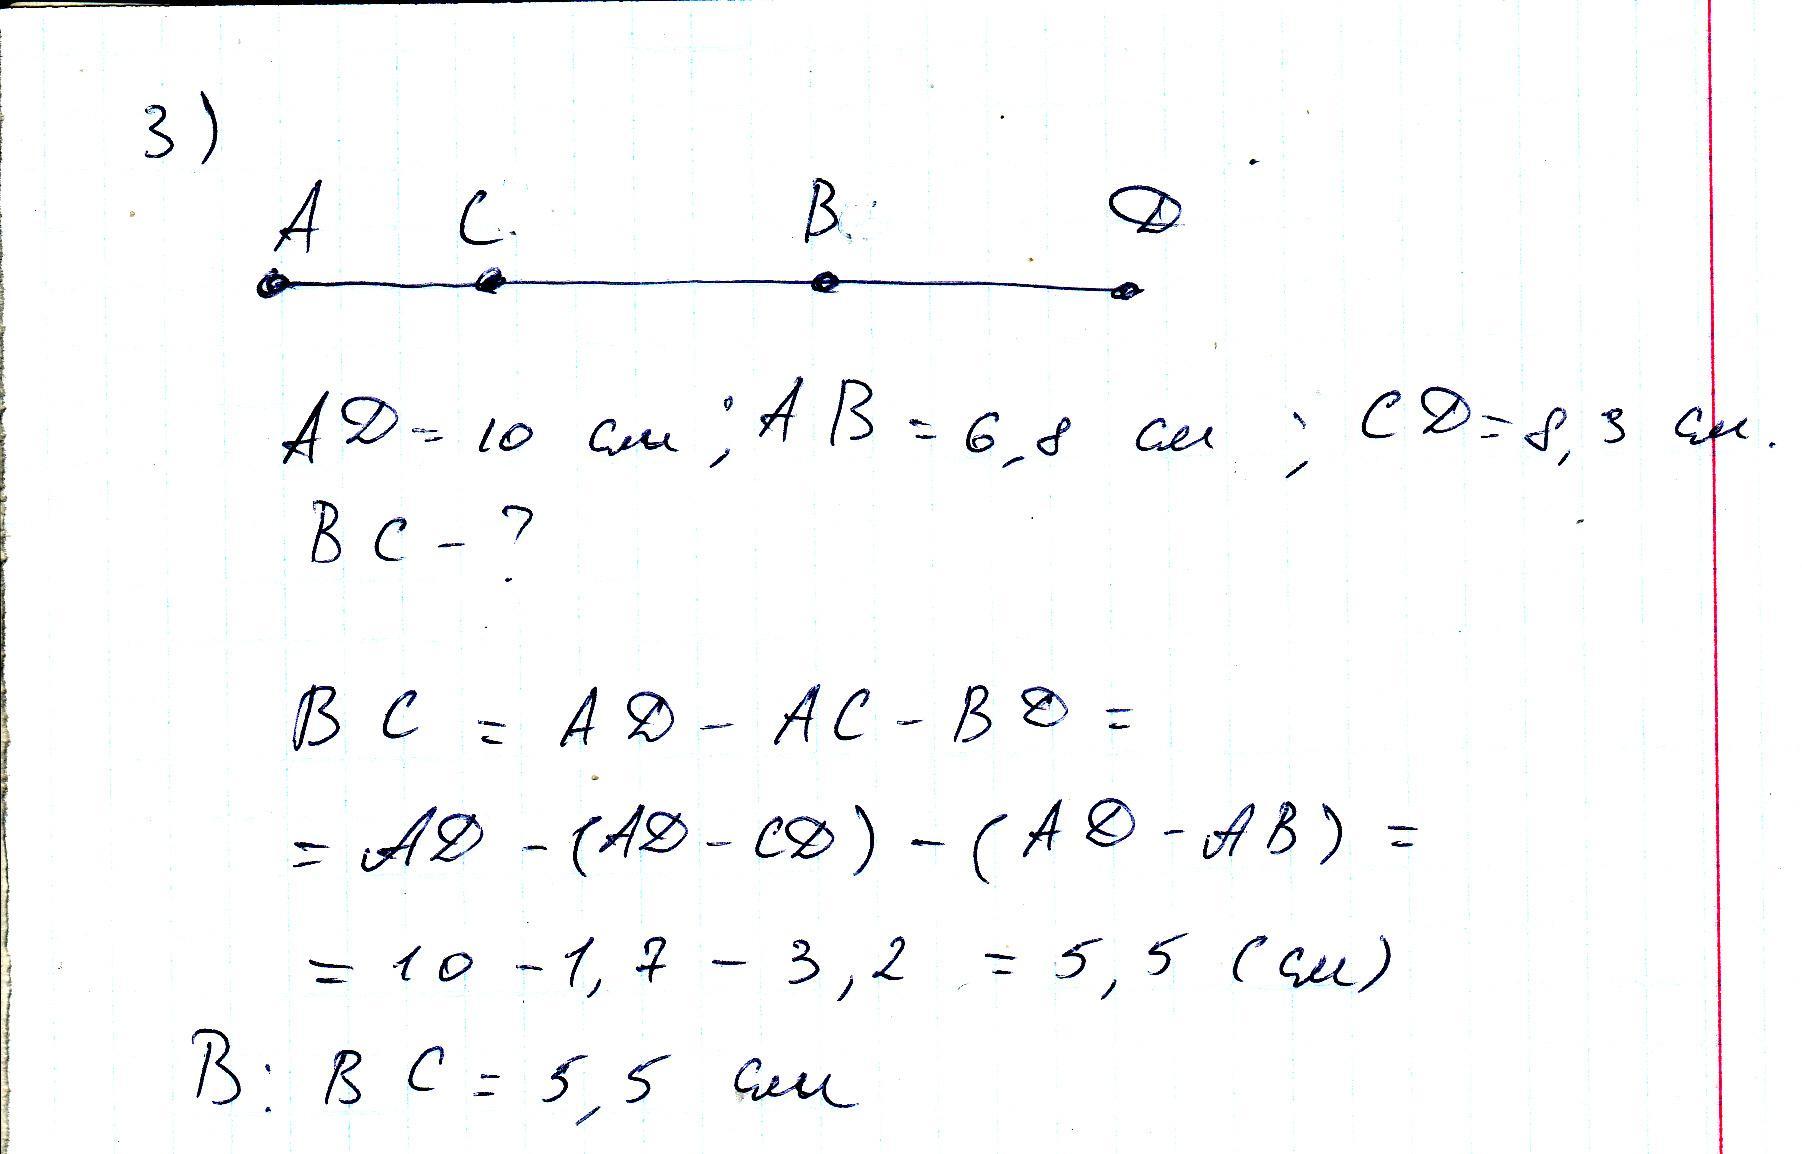 3)
A C B D
AD = 10 см ; AB = 6,8 см ; CD = 8,3 см.
BC - ?
BC = AD - AC - BD =
= AD - (AD - CD) - (AD - AB) =
= 10 - 1,7 - 3,2 = 5,5 (см)
В: BC = 5,5 см